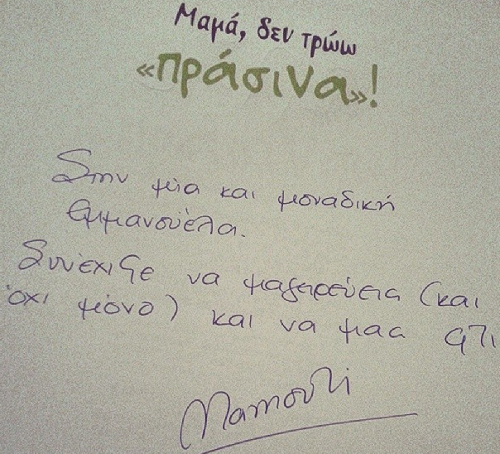 Μαμά, δεν τρώω
«πράσινα»!
Στην μία και μοναδική
Εμμανουέλα.
Συνέχισε να μαγειρεύεις (και
όχι μόνο) και να μας